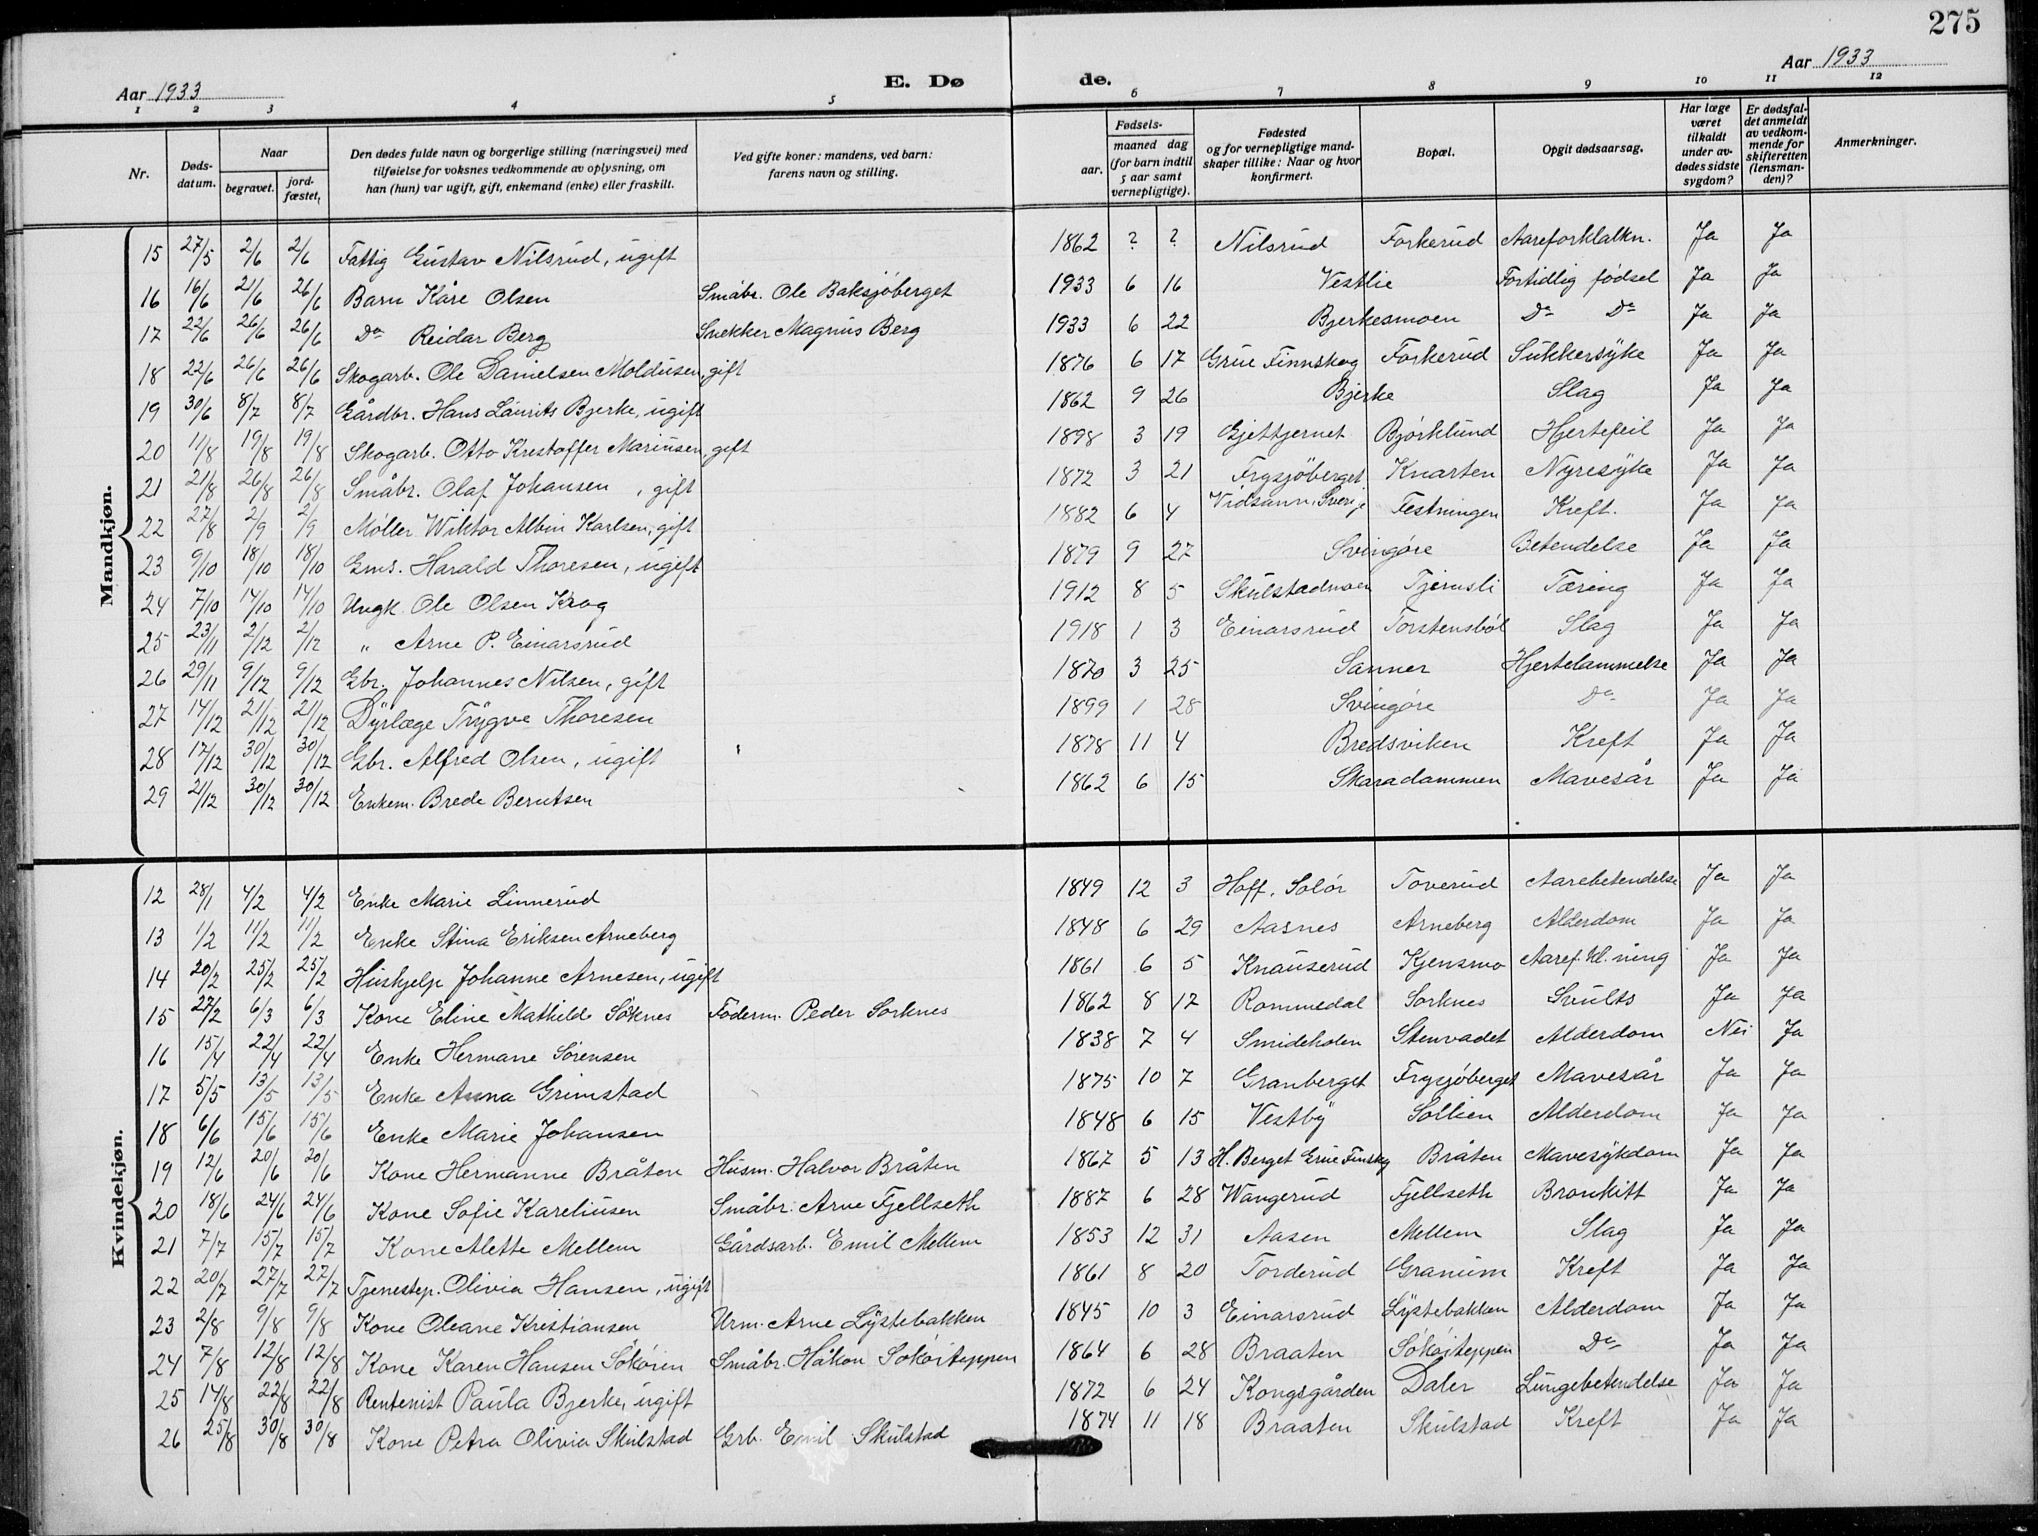 275
Aar 1933 E. Dø de. Aar 1933
1 2 3 4 5 6 7 8 9 10 11 12
Nr. Dødsdatum. Naar begravet. jordfæstet. Den dødes fulde navn og borgerlige stilling (næringsvei) med tilføielse for voksnes vedkommende av oplysning, om han (hun) var ugift, gift, enkemand (enke) eller fraskilt. Ved gifte koner: mandens, ved barn: farens navn og stilling. Fødsels- aar. maaned dag (for barn indtil 5 aar samt vernepligtige). Fødested og for vernepligtige mandskaper tillike: Naar og hvor konfirmert. Bopæl. Opgit dødsaarsag. Har læge været tilkaldt under avdødes sidste sygdom? Er dødsfaldet anmeldt av vedkommende for skifteretten (lensmanden)? Anmerkninger.
Mandkjøn.
15 27/5 2/6 2/6 Fattig Gustav Nilsrud, ugift 1862 ? ? Nilsrud Forkerud Aareforklalkn. Ja Ja
16 16/6 21/6 26/6 Barn Kåre Olsen Småbr. Ole Baksjöberget 1933 6 16 Vestlie Fortidlig fødsel Ja Ja
17 22/6 26/6 26/6 Do Reidar Berg Snekker Magnus Berg 1933 6 22 Bjerkesmoen Do Do Ja Ja
18 22/6 26/6 26/6 Skogarb. Ole Danielsen Moldusen, gift 1876 6 17 Grue Finnskog Forkerud Sukkersyke Ja Ja
19 30/6 8/7 8/7 Gårdbr. Hans Laurits Bjerke, ugift 1862 9 26 Bjerke Slag Ja Ja
20 11/8 19/8 19/8 Skogarb. Otto Krestoffer Mariusen, gift 1898 3 19 Gjettjernet Bjørklund Hjertefeil Ja Ja
21 21/8 26/8 26/8 Småbr. Olaf Johansen, gift 1872 3 21 Frysjöberget Knarten Nyresyke Ja Ja
22 27/8 2/9 2/9 Møller Wiktor Albin Karlsen, gift 1882 6 4 Vidsann, Sverige Festningen Kreft. Ja Ja
23 9/10 18/10 18/10 Gms. Harald Thoresen, ugift 1879 9 27 Svingøre Betendelse Ja Ja
24 7/10 14/10 14/10 Ungk. Ole Olsen Krog 1912 8 5 Skulstadmoen Tjernsli Tæring Ja Ja
25 23/11 2/12 2/12 „ Arne P. Einarsrud 1918 1 3 Einarsrud Torstensböl Slag Ja Ja
26 29/11 9/12 9/12 Gbr. Johannes Nilsen, gift 1870 3 25 Sanner Hjertelammelse Ja Ja
27 14/12 21/12 21/12 Dyrlæge Trygve Thoresen 1899 1 28 Svingøre Do Ja Ja
28 17/12 30/12 30/12 Gbr. Alfred Olsen, ugift 1878 11 4 Bredsviken Kreft Ja Ja
29 21/12 30/12 30/12 Enkem. Brede Berntsen 1862 6 15 Skaradammen Mavesår Ja Ja
Kvindekjøn.
12 28/1 4/2 4/2 Enke Marie Linnerud 1849 12 3 Hoff, Solör Toverud Aarebetendelse Ja Ja
13 1/2 11/2 11/2 Enke Stina Eriksen Arneberg 1848 6 29 Aasnes Arneberg Alderdom Ja Ja
14 20/2 25/2 25/2 Hushjelp Johanne Arnesen, ugift 1861 6 5 Knauserud Kjensmo Aaref.kl.ning Ja Ja
15 27/2 6/3 6/3 Kone Eline Mathilde Sörknes Föderm. Peder Sorknes 1862 8 17 Rommedal Sorknes Svults Ja Ja
16 15/4 22/4 22/4 Enke Hermane Sørensen 1838 7 4 Smideholen Stenvadet Alderdom Nei Ja
17 5/5 13/5 13/5 Enke Anna Grimstad 1875 10 7 Granberget Frysjøberget Mavesår Ja Ja
18 6/6 15/6 15/6 Enke Marie Johansen 1848 6 15 Vestby Sollien Alderdom Ja Ja
19 12/6 20/6 20/6 Kone Hermanne Bråten Husm. Halvor Bråten 1867 5 13 H. Berget Grue Finskg Bråten Mavesykdom Ja Ja
20 18/6 24/6 24/6 Kone Sofie Kareliusen Småbr. Arne Fjellseth 1887 6 28 Wangerud Fjellseth Bronkitt Ja Ja
21 7/7 15/7 15/7 Kone Alette Mellem Gårdsarb. Emil Mellem 1853 12 31 Aasen Mellem Slag Ja Ja
22 20/7 27/7 27/7 Tjenestep. Olivia Hansen, ugift 1861 8 20 Torderud Granum Kreft Ja Ja
23 2/8 9/8 9/8 Kone Oleane Kristiansen Urm. Arne Lystebakken 1845 10 3 Einarsrud Lystebakken Alderdom Ja Ja
24 7/8 12/8 12/8 Kone Karen Hansen Sökören Småbr. Håkon Soköiteppen 1864 6 28 Braaten Sököiteppen Do Ja Ja
25 14/8 22/8 22/8 Rentenist Paula Bjerke, ugift 1872 6 24 Kongsgården Daler Lungebetendelse Ja Ja
26 25/8 30/8 30/8 Kone Petra Olivia Skulstad Grb. Emil Skulstad 1874 11 18 Braaten Skulstad Kreft Ja Ja